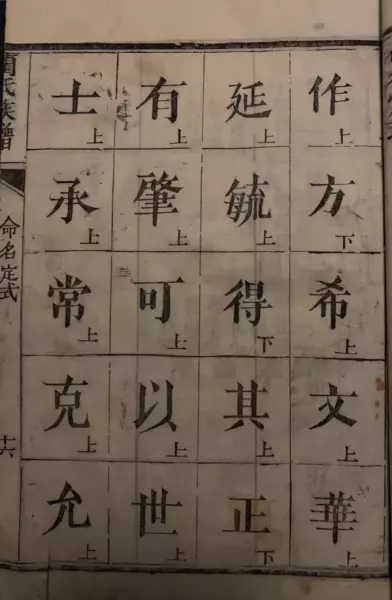 作上方下希上文上華上
延上毓上得下其上正下
有上肇上可上以上世上
士上承上常上克上允上
氏族譜
命名定式
十六